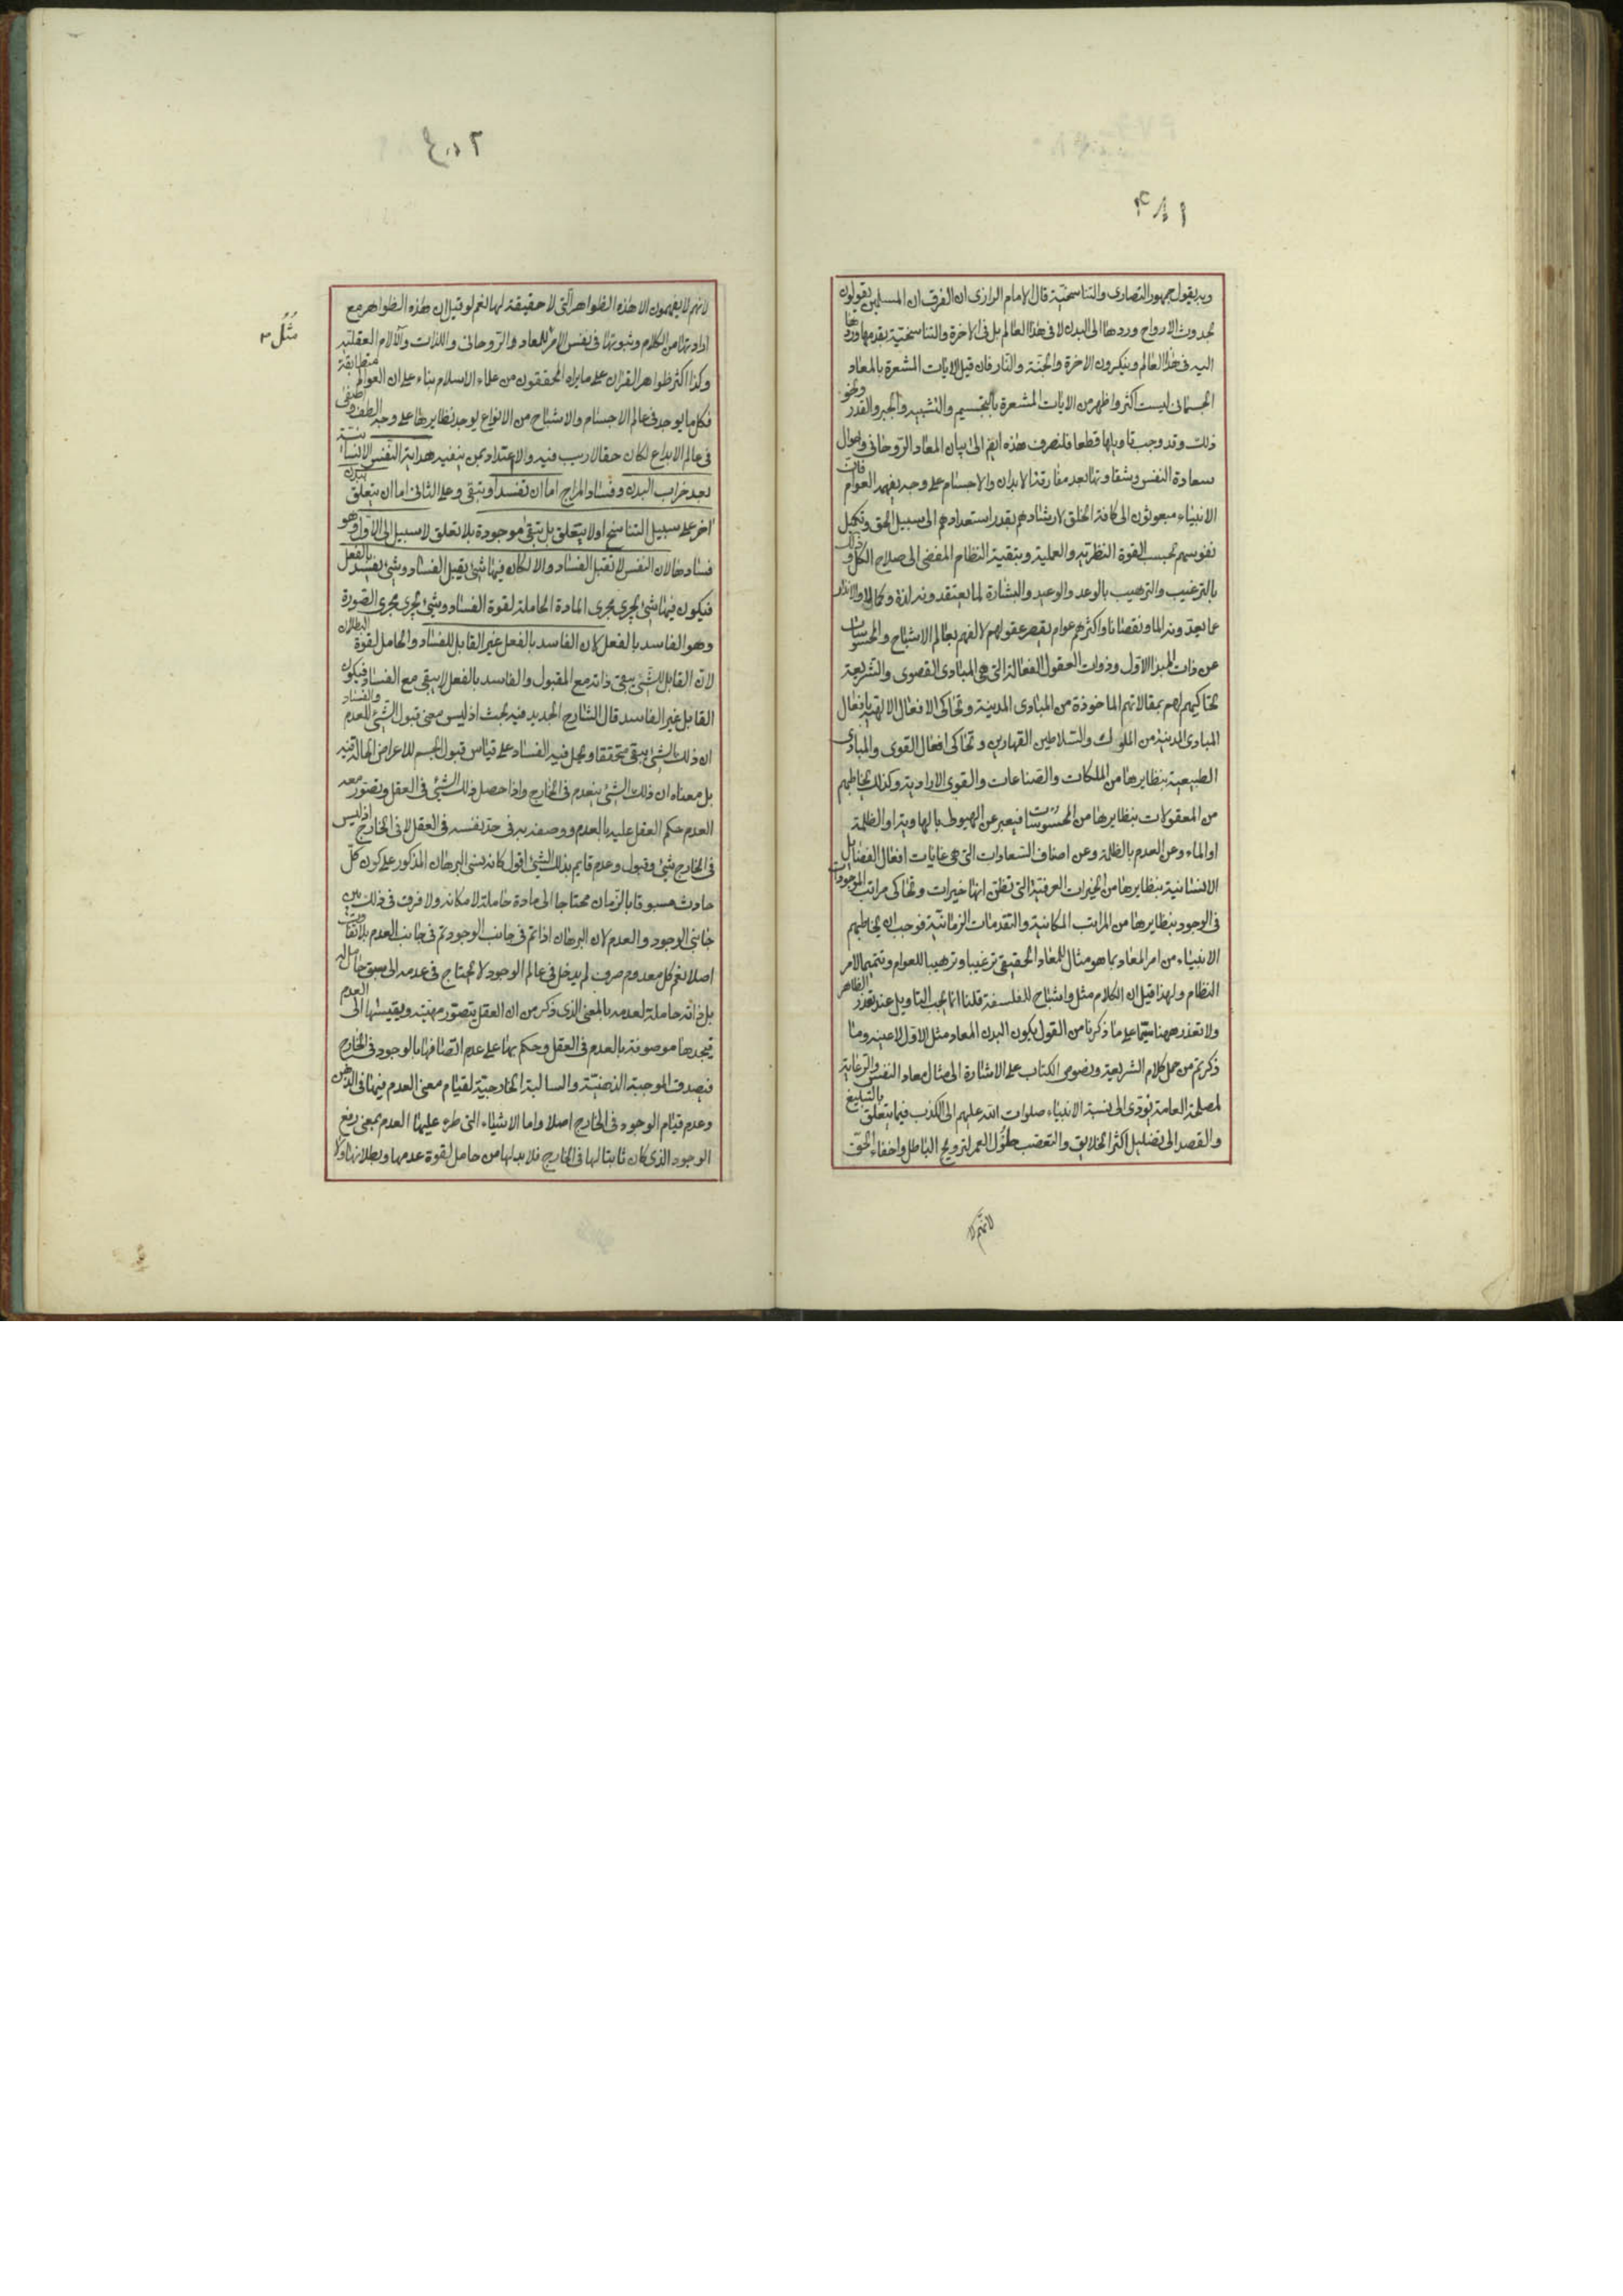 ١٨٣
وبه يقول جمهور النصارى والتناسخية قال الامام الرازى ان الفرق ان المسلمين يقولون
بحدوث الارواح وردها الى البدن لا فى هذا العالم بل فى الاخرة والتناسخية بقدمها وردها
اليه فى هذا العالم وينكرون الاخرة والجنة والنار فان قيل الايات المشعرة بالمعاد
الجسمانى ليست اكثر واظهر من الايات المشعرة بالتجسيم والتشبيه والجبر والقدر ونحو
ذلك وقد وجب تاويلها قطعا فلنصرف هذه ايضا الى بيان المعاد الروحانى واحوال
سعادة النفس وشقاوتها بعد مفارقة الابدان والاجسام على وجه يفهمه العوام فان
الانبياء مبعوثون الى كافة الخلق لارشادهم بقدر استعدادهم الى سبيل الحق وتكميل
نفوسهم بحسب القوة النظرية والعملية وبتقية النظام المفضى الى صلاح الكل وذلك
بالترغيب والترهيب بالوعد والوعيد والبشارة لما يعتقدونه لذة وكمالا والانذار
عما يعدونه الما ونقصانا واكثرهم عوام يقصر عقولهم لالفهم بعالم الاشباح والمحسوسات
عن ذات المبدأ الاول وذوات العقول الفعالة التى هى المبادى القصوى والشريعة
تحاكيهم لهم بمقالاتهم الماخوذة من المبادى المدينية وتحاكى الافعال الالهية بافعال
المبادى المدينية من الملوك والسلاطين القهارين وتحاكى افعال القوى والمبادى
الطبيعية بنظايرها من الملكات والصناعات والقوى الارادية وكذلك يخاطبهم
من المعقولات بنظايرها من المحسوسات فيعبر عن الهيولى بالهاوية او الظلمة
او الماء وعن العدم بالظلمة وعن اصناف السعادات التى هى غايات افعال الفضايل
الانسانية بنظايرها من الخيرات العرفية التى تظن انها خيرات وتحاكى مراتب الموجودات
فى الوجود بنظايرها من المراتب المكانية والتقدمات الزمانية فوجب ان يخاطبهم
الانبياء من امر المعاد بما هو مثال للمعاد الحقيقى ترغيبا وترهيبا للعوام وتتميما لامر
النظام ولهذا قيل ان الكلام مثل واشباح للفلسفة قلنا انما يجب التاويل عند تعذر الظاهر
ولا تعذر ههنا سيما على ما ذكرنا من القول بكون البدن المعاد مثل الاول لا عينه وما
ذكرتم من حمل كلام الشريعة ونصوص الكتاب على الاشارة الى مثال معاد النفس والرعاية
لمصلحة العامة يؤدى الى نسبة الانبياء صلوات الله عليهم الى الكذب فيما يتعلق بالتبليغ
والقصد الى تضليل اكثر الخلايق والتعصب طول العمر لترويج الباطل واخفاء الحق
لانهم لا
لانهم لا يفهمون الا هذه الظواهر التى لا حقيقة لها نعم لو قيل ان هذه الظواهر مع
ارادتها من الكلام وثبوتها فى نفس الامر للمعاد والروحانى واللذات والآلام العقلية
مثل
وكذا اكثر ظواهر القران على ما يراه المحققون من علماء الاسلام بناء على ان العوالم متطابقة
فكل ما يوجد فى عالم الاجسام والاشباح من الانواع يوجد نظايرها على وجه الطف واصفى
فى عالم الابداع لكان حقا لا ريب فيه والاعتداد بمن ينفيه هداية النفس الانسانية
بعد خراب البدن وفساد المزاج اما ان تفسد او يتبقى وعلى الثانى اما ان يتعلق ببدن
اخر على سبيل التناسخ او لا يتعلق بل تبقى موجودة بلا تعلق لا سبيل الى الاول وهو
فسادها لان النفس لا تقبل الفساد والا لكان فيها شئ يقبل الفساد وشئ يفسد بالفعل
فيكون فيها شئ يجرى مجرى المادة الحاملة لقوة الفساد وشئ يجرى مجرى الصورة
وهو الفاسد بالفعل لان الفاسد بالفعل غير القابل للفساد والحامل لقوة البطلان
لان القابل للشئ يبقى ذاته مع المقبول والفاسد بالفعل لا يبقى مع الفساد فيكون
القابل غير الفاسد قال الشارح الجديد فيه بحث اذ ليس معنى قبول الشئ للعدم والفساد
ان ذلك الشئ يبقى متحققا ويحل فيه الفساد على قياس قبول الجسم للاعراض الحالة فيه
بل معناه ان ذلك الشئ ينعدم فى الخارج واذا حصل ذلك الشئ فى العقل وتصور معه
العدم حكم العقل عليه بالعدم ووصفه به فى حد نفسه فى العقل لا فى الخارج اذ ليس
فى الخارج شئ وقبول وعدم قايم بذلك الشئ اقول كانه نسى البرهان المذكور على كون كل
حادث مسبوقا بالزمان محتاجا الى مادة حاملة لامكانه ولا فرق فى ذلك بين
جانبى الوجود والعدم لان البرهان اذا تم فى جانب الوجود تم فى جانب العدم بلا تفاوت
اصلا نعم كل معدوم صرف لم يدخل فى عالم الوجود لا يحتاج فى عدمه الى سبق حامل له
بل ذاته حاملة لعدمه بالمعنى الذى ذكر من ان العقل يتصور مهيته ويقيسها الى العدم
فيجدها موصوفة بالعدم فى العقل وحكم بها على عدم اتصافها بالوجود فى الخارج
فيصدق الموجبة الذهنية والسالبة الخارجية لقيام معنى العدم فيها فى الذهن
وعدم قيام الوجود فى الخارج اصلا واما الاشياء التى طرء عليها العدم بمعنى رفع
الوجود الذى كان ثابتا لها فى الخارج فلا بد لها من حامل لقوة عدمها وبطلانها اولا